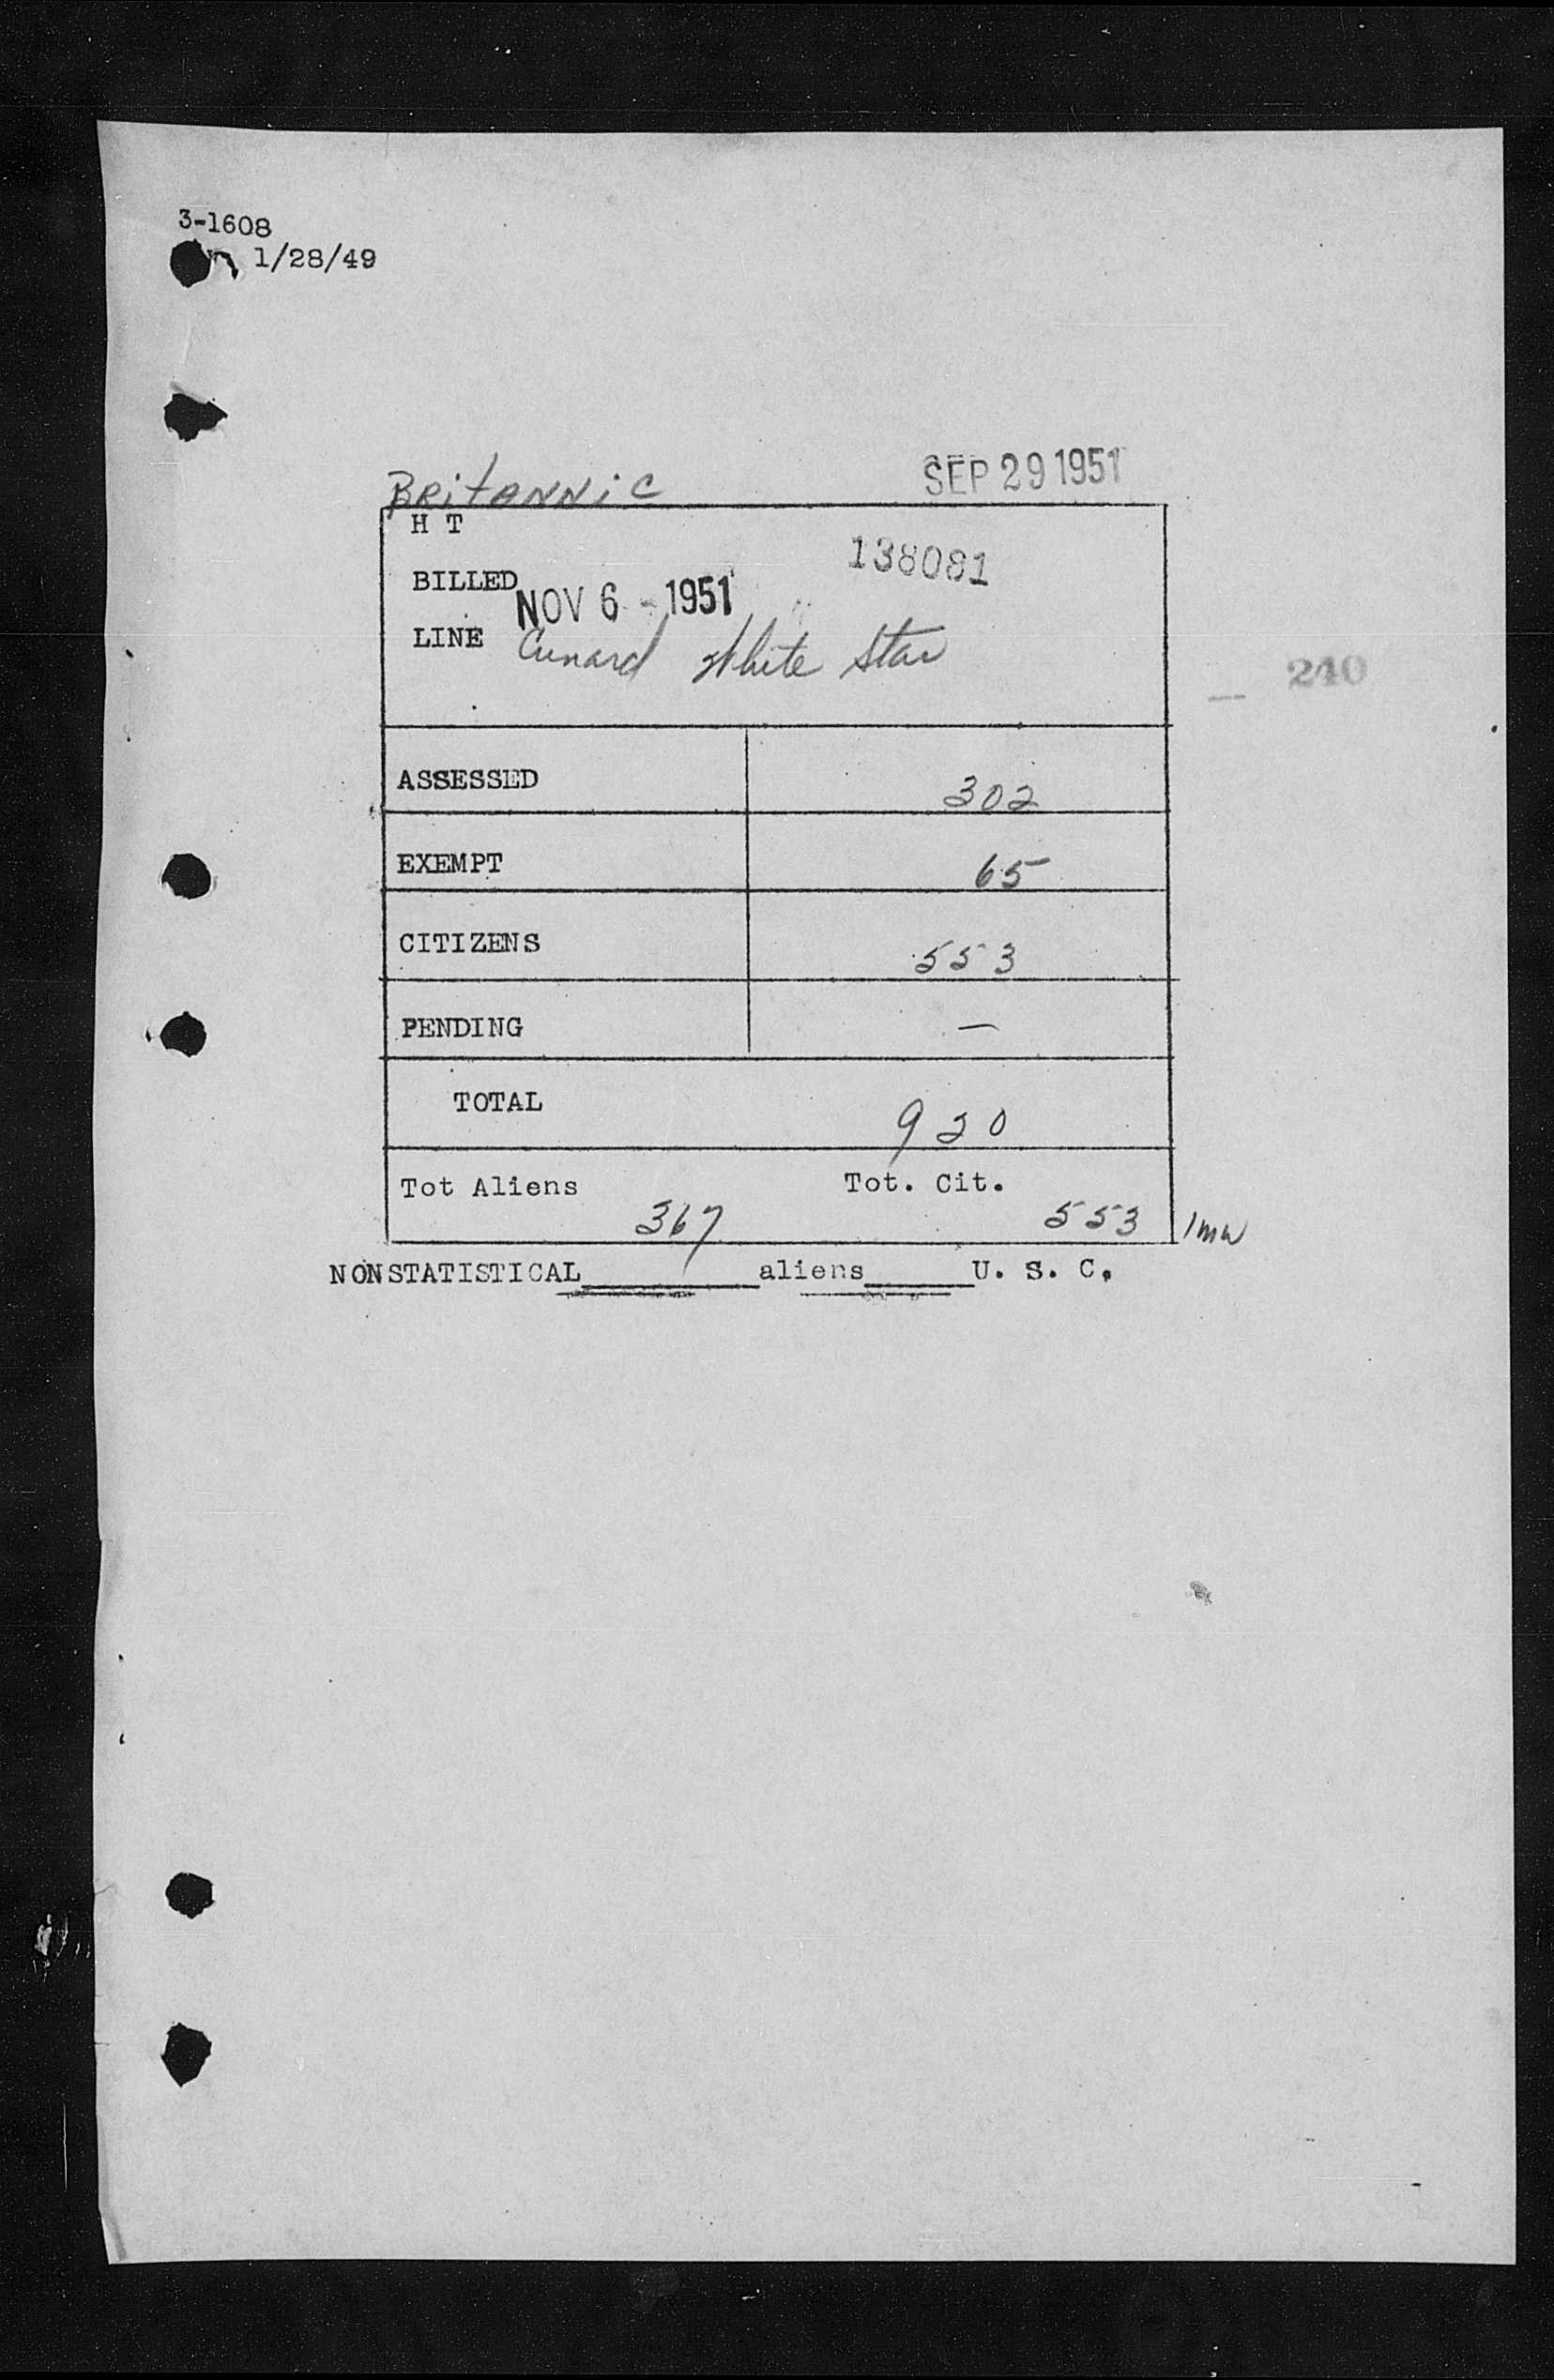 3-1608
1/28/49
Britannic SEP 29 1951
H T
138081
BILLED NOV 6 - 1951
LINE Cunard White Star
240
ASSESSED 302
EXEMPT 65
CITIZENS 553
PENDING —
TOTAL 920
Tot Aliens Tot. Cit.
367 553 /mw
NONSTATISTICAL______aliens______U. S. C.